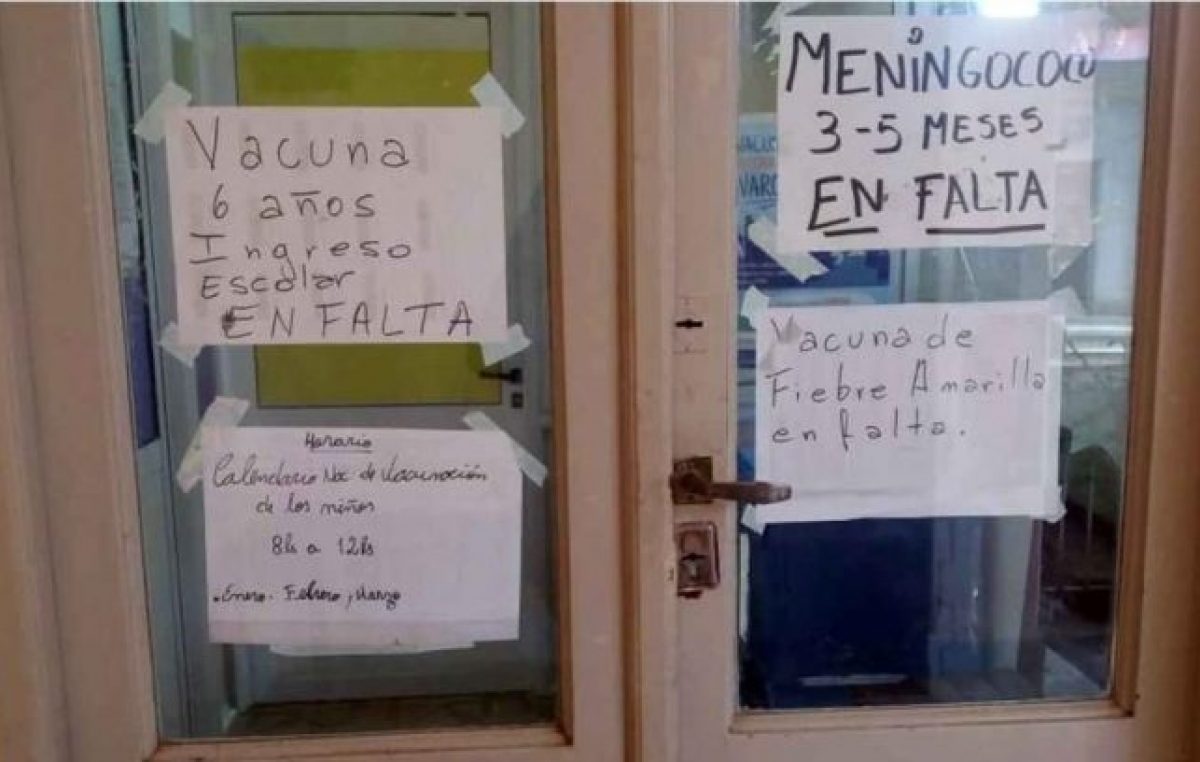 Vacuna
6 años
Ingreso
Escolar
EN FALTA
Horario
Calendario Nac de Vacunación
de los niños
8hs a 12hs
. Enero - Febrero, Marzo
MENiNGOCOCO
3-5 MESES
EN FALTA
Vacuna de
Fiebre Amarilla
en falta.